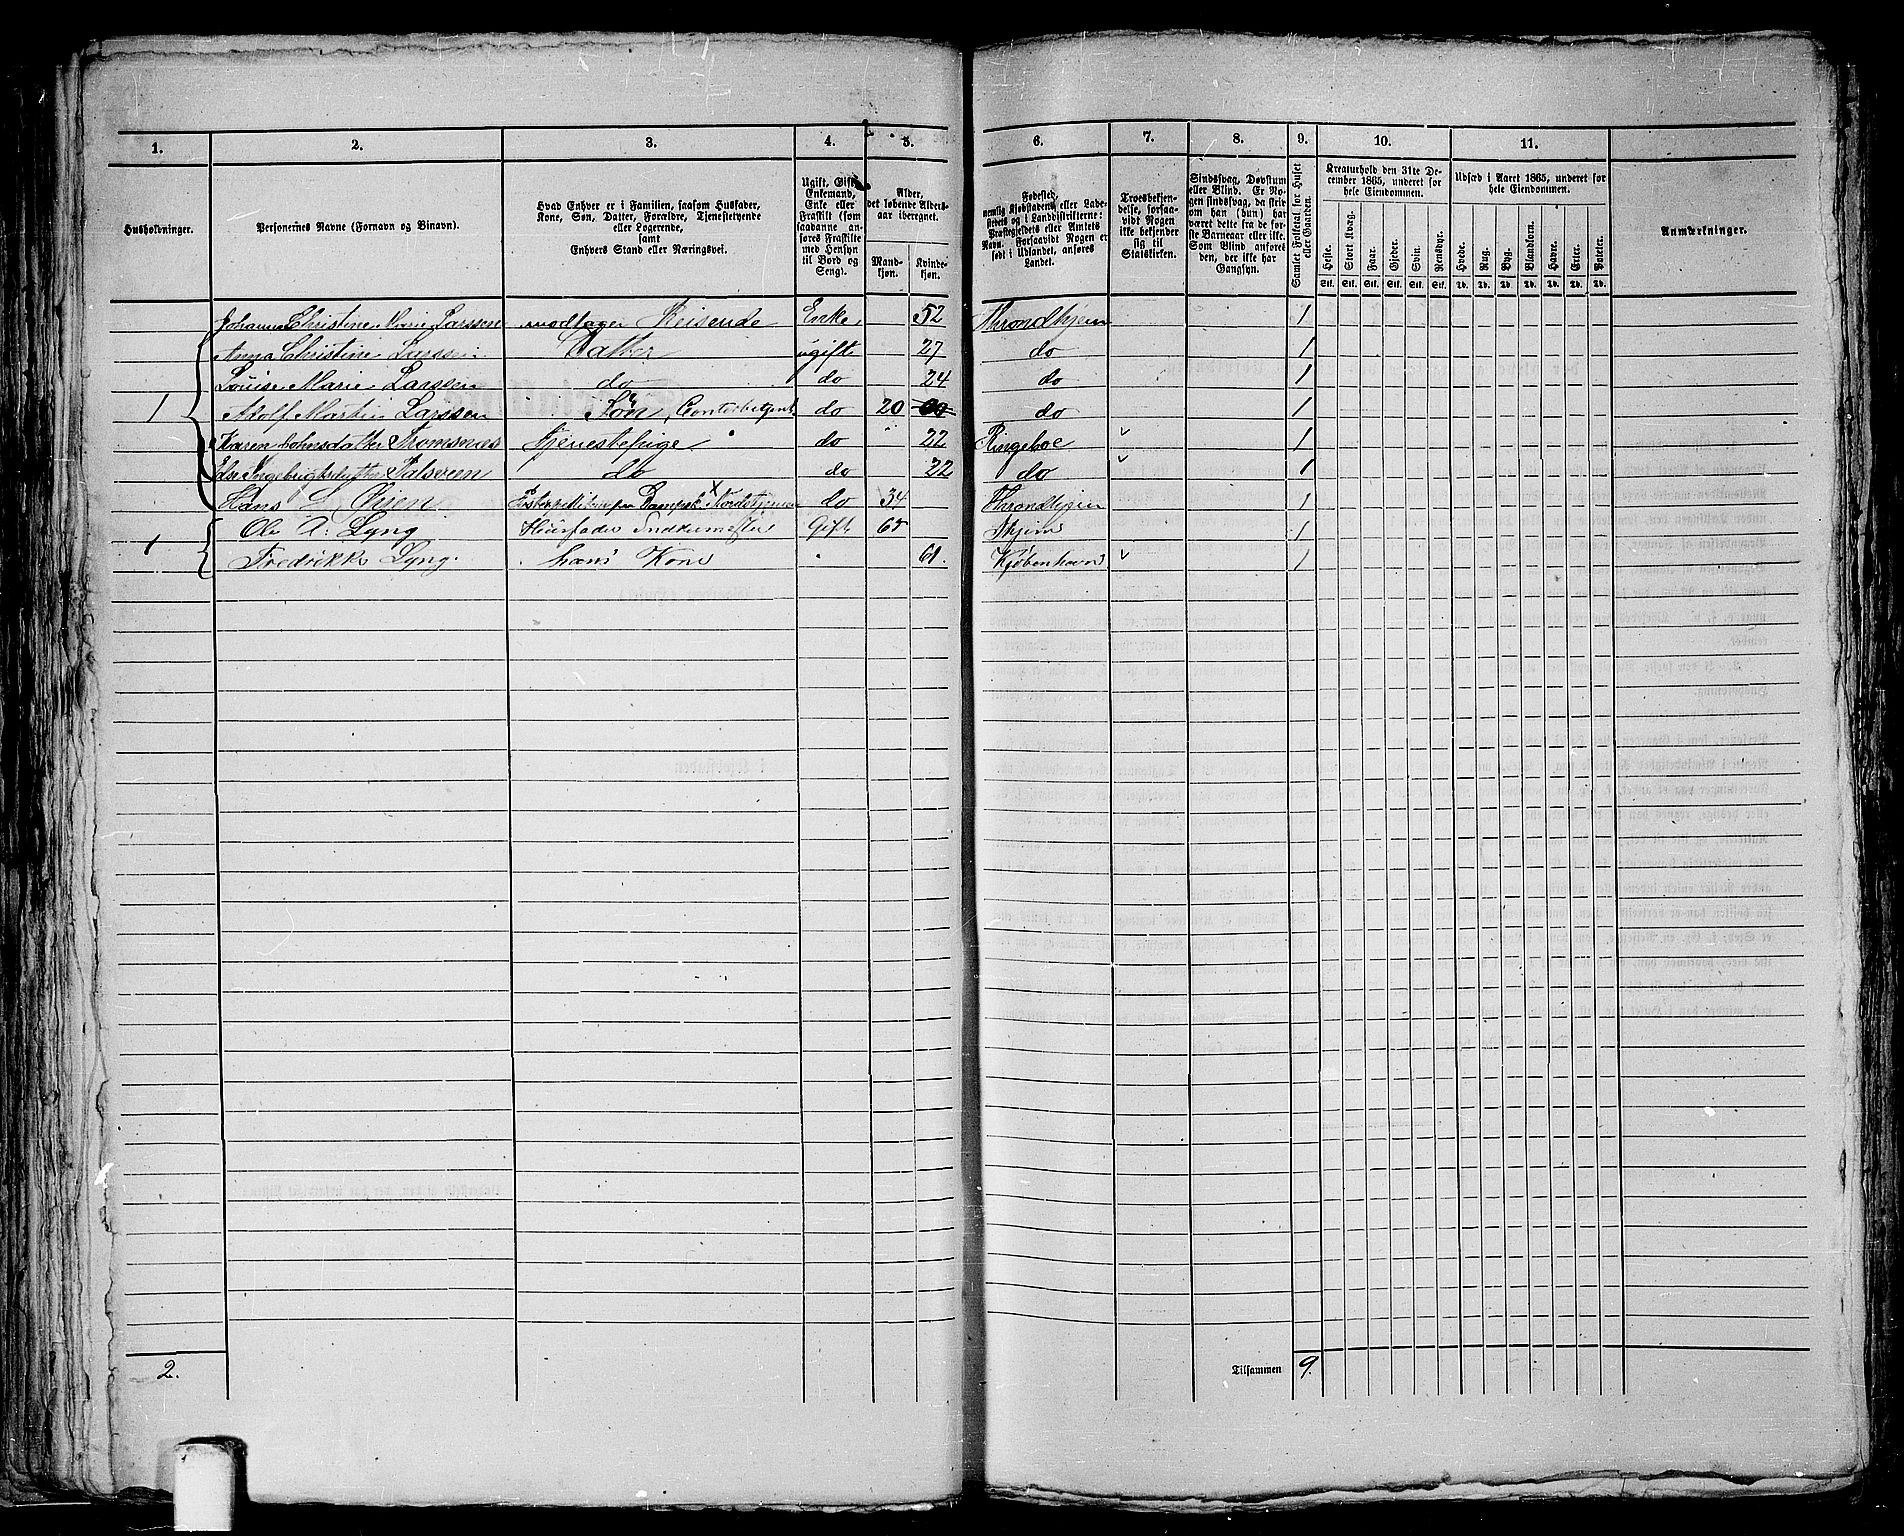 1. 2. 3. 4. 5. 6. 7. 8. 9. 10. 11.
Husholdninger.
Personernes Navne (Fornavn og Binavn).
Hvad Enhver er i Familien, saasom Husfader,
Kone, Søn, Datter, Forældre, Tjenestetyende
eller Logerende,
samt
Enhvers Stand eller Næringsvei.
Ugift, Gift,
Enkemand,
Enke eller
Fraskilt (som
saadanne an-
føres Fraskilte
med Hensyn
til Bord og
Seng).
Alder,
det løbende Alders-
aar iberegnet.
Mand-
kjøn.
Kvinde-
kjøn.
Fødested,
nemlig Kjøbstadens eller Lade-
stedets og i Landdistrikterne:
Præstegjeldets eller Amtets
Navn. Forsaavidt Nogen er
født i Udlandet, anføres
Landet.
Troesbekjen-
delse, forsaa-
vidt Nogen
ikke bekjender
sig til
Statskirken.
Sindssvag, Døvstum
eller Blind. Er No-
gen sindssvag, da skriv
om han (hun) har
været dette fra de før-
ste Barneaar eller ikke.
Som Blind anføres
den, der ikke har
Gangsyn.
Samlet Folketal for Huset
eller Gaarden.
Kreaturhold den 31te De-
cember 1865, underet for
hele Eiendommen.
Heste. Stort Kvæg. Faar. Gjeder. Svin. Rensdyr.
Stk. Stk. Stk. Stk. Stk. Stk.
Udsæd i Aaret 1865, underet for
hele Eiendommen.
Hvede. Rug. Byg. Blandkorn. Havre. Erter. Poteter.
Td. Td. Td. Td. Td. Td. Td.
Anmærkninger.
Johanna Christine Marie Larssen modtager Reisende Enke 52 Throndhjem 1
Anna Christine Larssen Datter ugift 27 do 1
Louise Marie Larssen do do 24 do 1
1 Adolf Martin Larssen Søn, Contorbetjent do 20 do 1
Karen Johnsdatter Tromsnes Tjenestepige do 22 Ringeboe 1
Ingebrigtsdatter do do 22 do 1
Hans L do 34 Throndhjem 1
1 Ole A. Lyng Huusfader Gift 65 Thjem 1
Fredrikke Lyng. hans Kone 61. Kjøbenhavn 1
2.
Tilsammen 9.